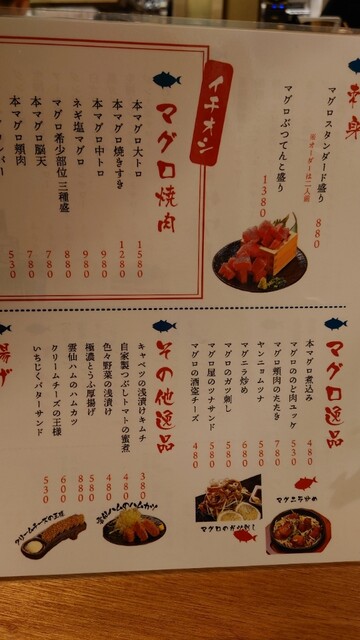 刺身
マグロスタンダード盛り 880
※オーダーは二人前
マグロぶつてんこ盛り 1380
イチオシ
マグロ焼肉
本マグロ大トロ 1580
本マグロ焼きすき 1280
本マグロ中トロ 980
ネギ塩マグロ 980
マグロ希少部位三種盛 780
本マグロ脳天 780
本マグロ頬肉 530
マグロ逸品
本マグロ煮込み 480
マグロののど肉ユッケ 530
マグロ頬肉のたたき 780
ヤンニョムツナ 580
マグニラ炒め 680
マグロのガツ刺し 580
マグロ屋のツナサンド 580
マグロの酒盗チーズ 480
マグニラ炒め
マグロのガツ刺し
その他逸品
キャベツの浅漬けキムチ 380
自家製つぶしトマトの蜜煮 480
色々野菜の浅漬け 480
極濃とうふ厚揚げ 580
雲仙ハムのハムカツ 880
クリームチーズの王様 680
いちじくバターサンド 530
雲仙ハムのハムカツ
クリームチーズの王様
揚げ